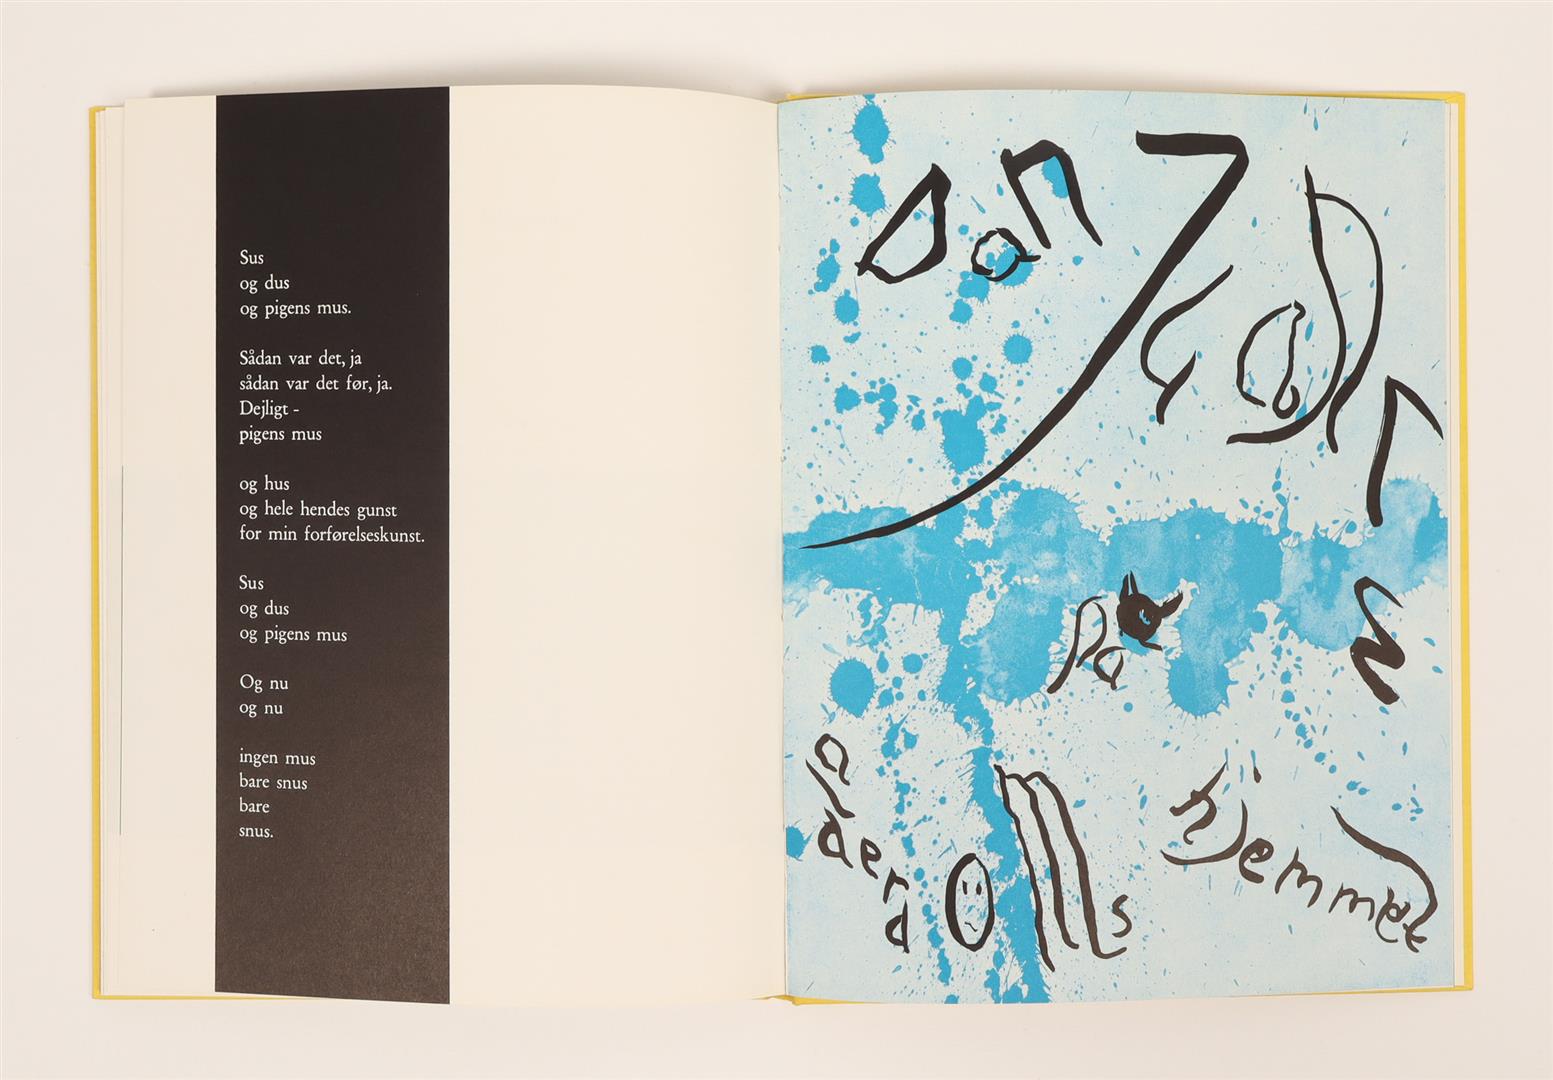 Sus
og dus
og pigens mus.
Sådan var det, ja
sådan var det før, ja.
Dejligt -
pigens mus
og hus
og hele hendes gunst
for min forførelseskunst.
Sus
og dus
og pigens mus
Og nu
og nu
ingen mus
bare snus
bare
snus.
Don Juan
på
alderdoms
hjemmet